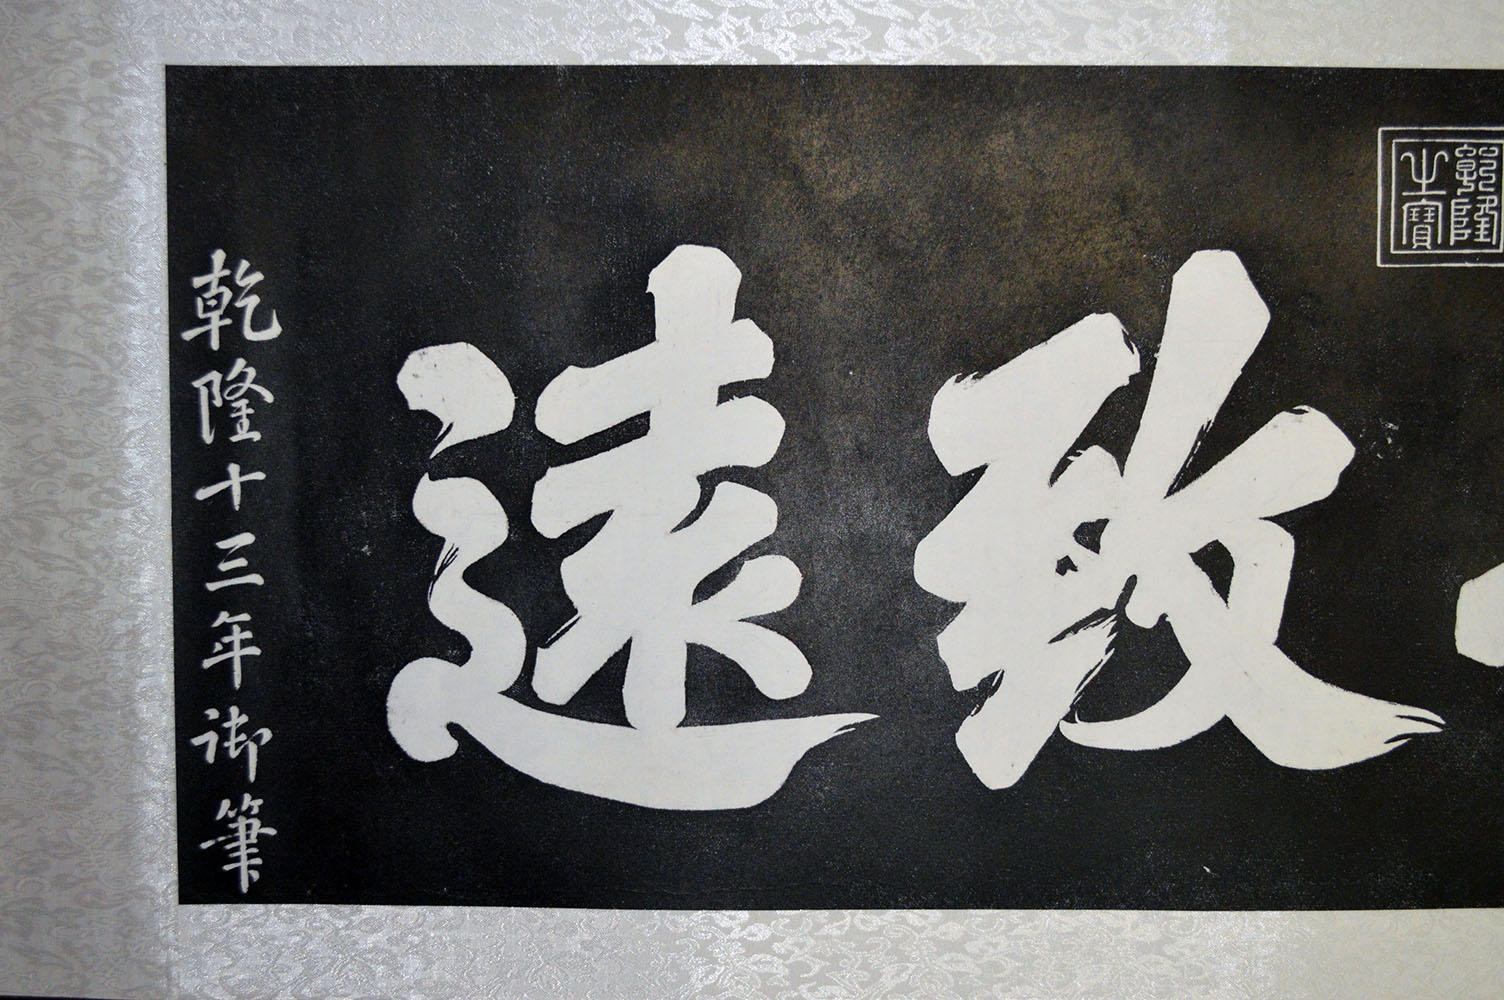 乾隆之寶
致遠
乾隆十三年御筆